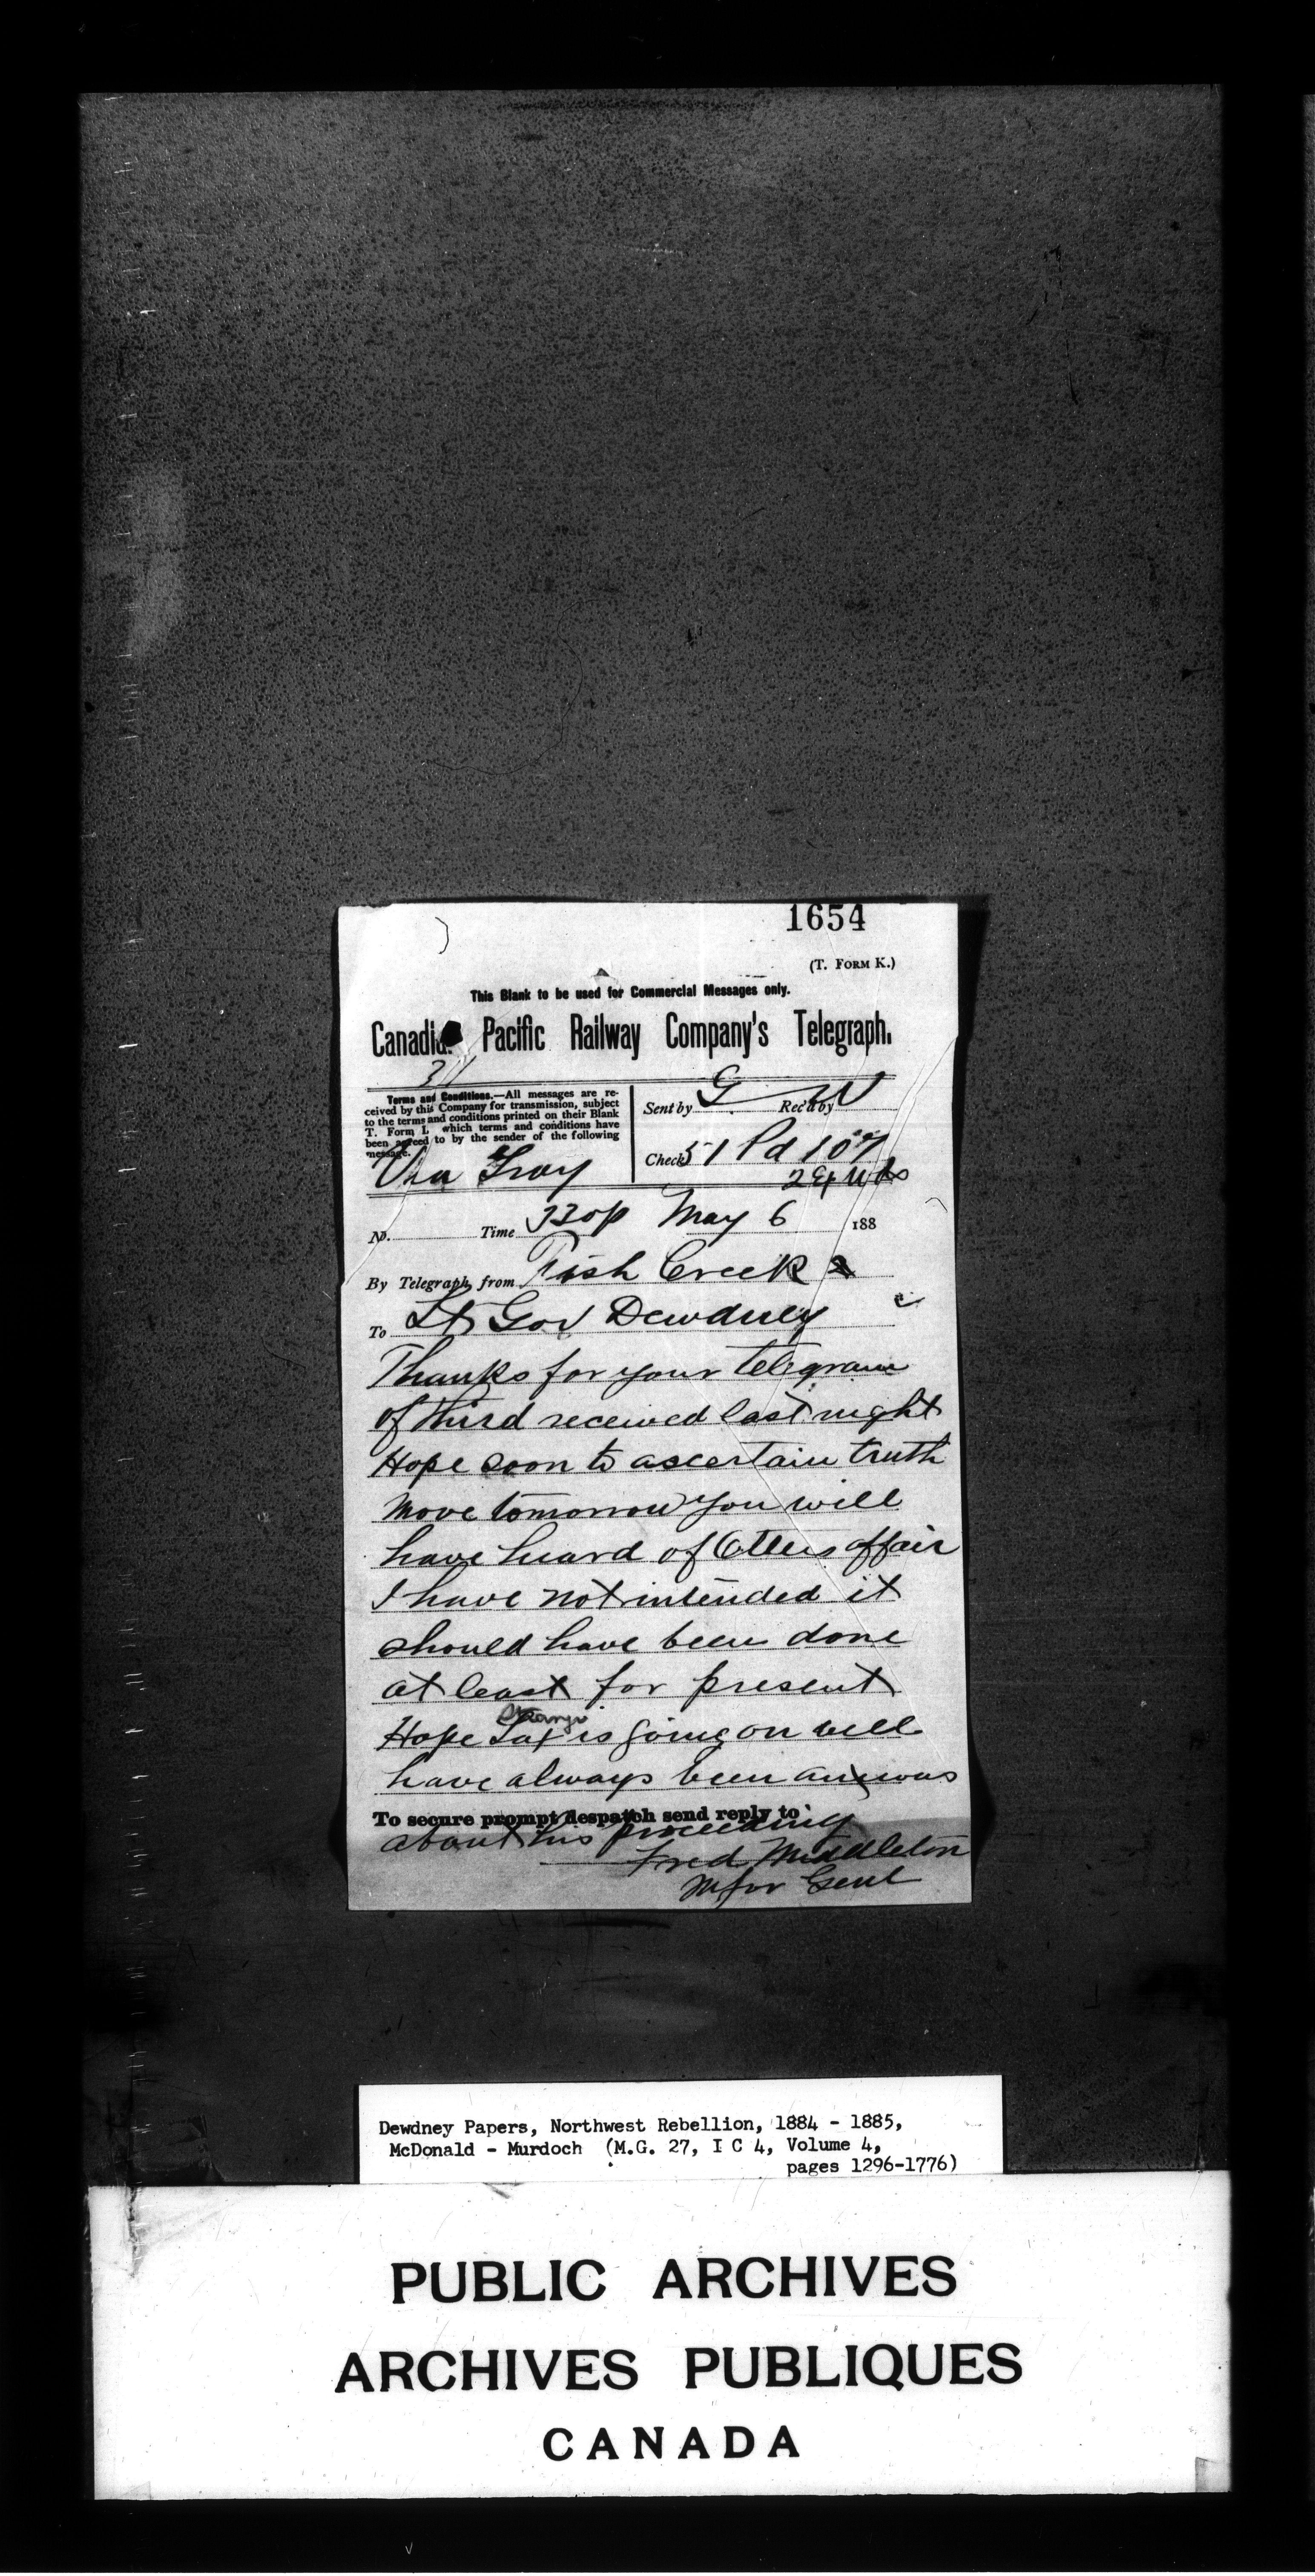 1654
(T. FORM K.)
This Blank to be used for Commercial Messages only.
Canadia Pacific Railway Company's Telegraph.
Terms and Conditions.—All messages are re-
ceived by this Company for transmission, subject
to the terms and conditions printed on their Blank
T. Form I, which terms and conditions have
been agreed to by the sender of the following
message.
Sent by G Rec'd by W
Check 51 Pd
Via
No. Time 330p May 6 188
By Telegraph from Fish Creek 2
To Lt Gov Dewdney
Thanks for your telegram
of third received last night
Hope soon to ascertain truth
Move tomorrow you will
have heard of Otters affair
I have not intended it
should have been done
at least for present
Strange
Hope is going on well
have always been anxious
To secure prompt despatch send reply to
about his proceeding
Fred Middleton
Mjor Genl
Dewdney Papers, Northwest Rebellion, 1884 - 1885,
McDonald - Murdoch (M.G. 27, I C 4, Volume 4,
pages 1296-1776)
PUBLIC ARCHIVES
ARCHIVES PUBLIQUES
CANADA